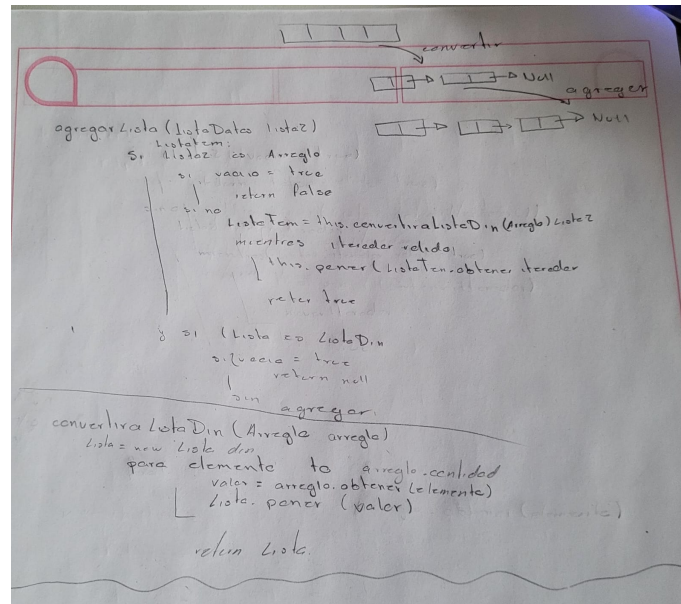 convertir
Null
agregar
Null
agregarLista (ListaDatos lista2)
ListaTem:
Si Lista2 es Arreglo
si vacio = true
return false
si no
ListaTem = this.convertiraListaDin (Arreglo) Lista2
mientras iterador valido
this.poner (ListaTem.obtener iterador
reter true
y si (Lista es ListaDin
si vacia = true
return null
sin
agregar.
convertiraListaDin (Arreglo arreglo)
Lista = new Lista din
para elemento to arreglo.cantidad
valor = arreglo.obtener (elemento)
Lista.poner (valor)
return Lista.